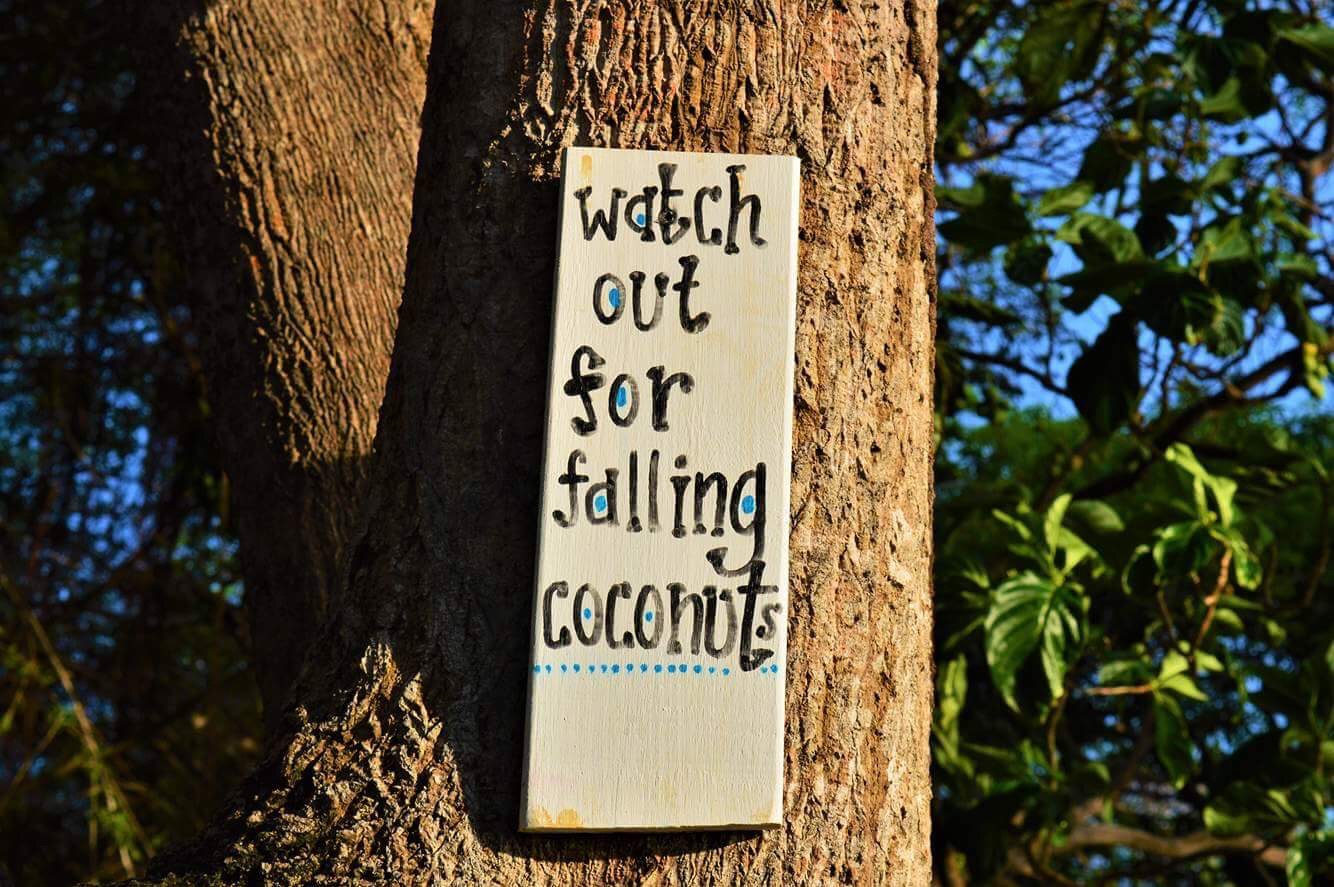 watch
out
for
falling
coconuts